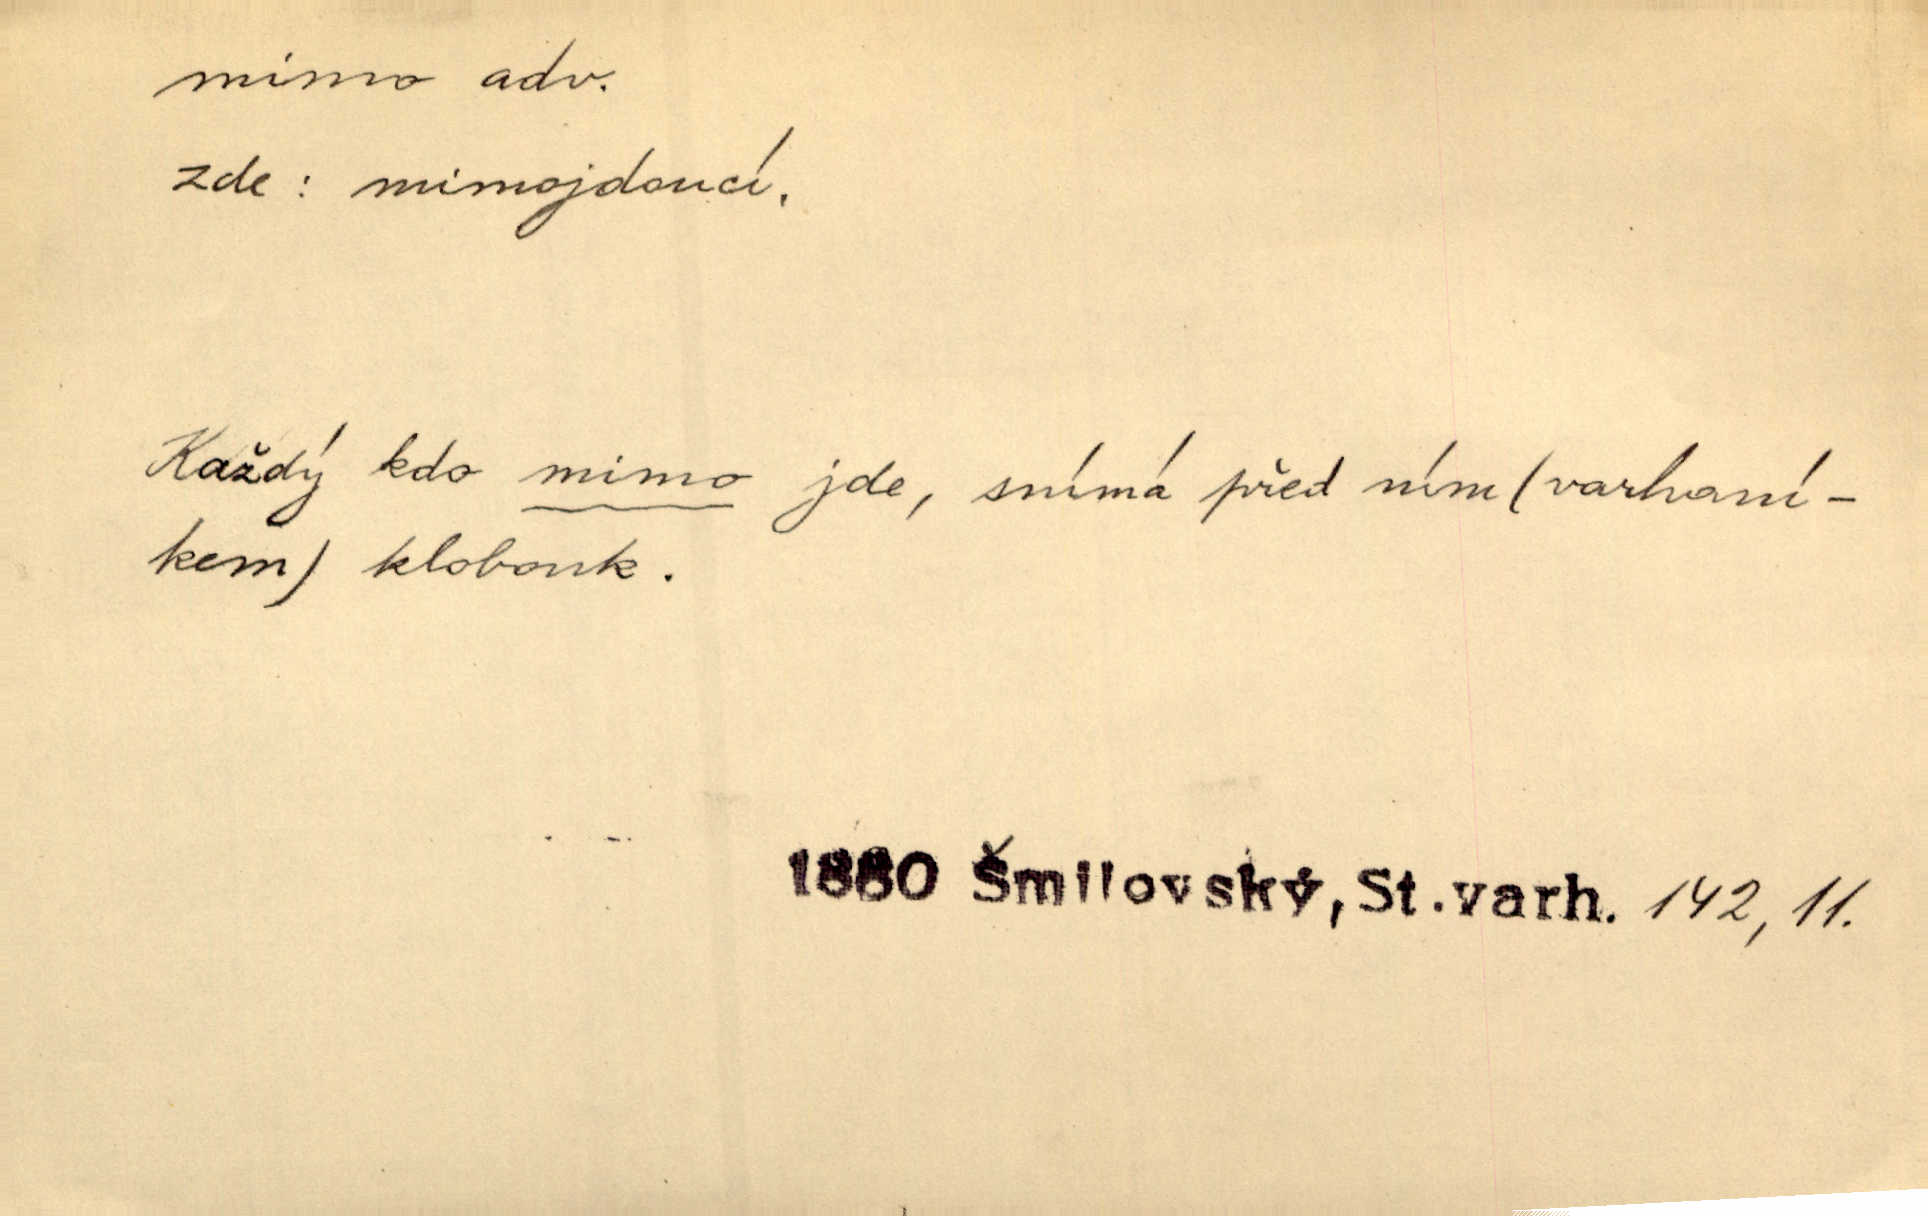 mimo adv.
zde: mimojdoucí.
Každý kdo mimo jde, snímá před ním (varhaní-
kem) klobouk.
1880 Šmilovský, St. varh. 142, 11.